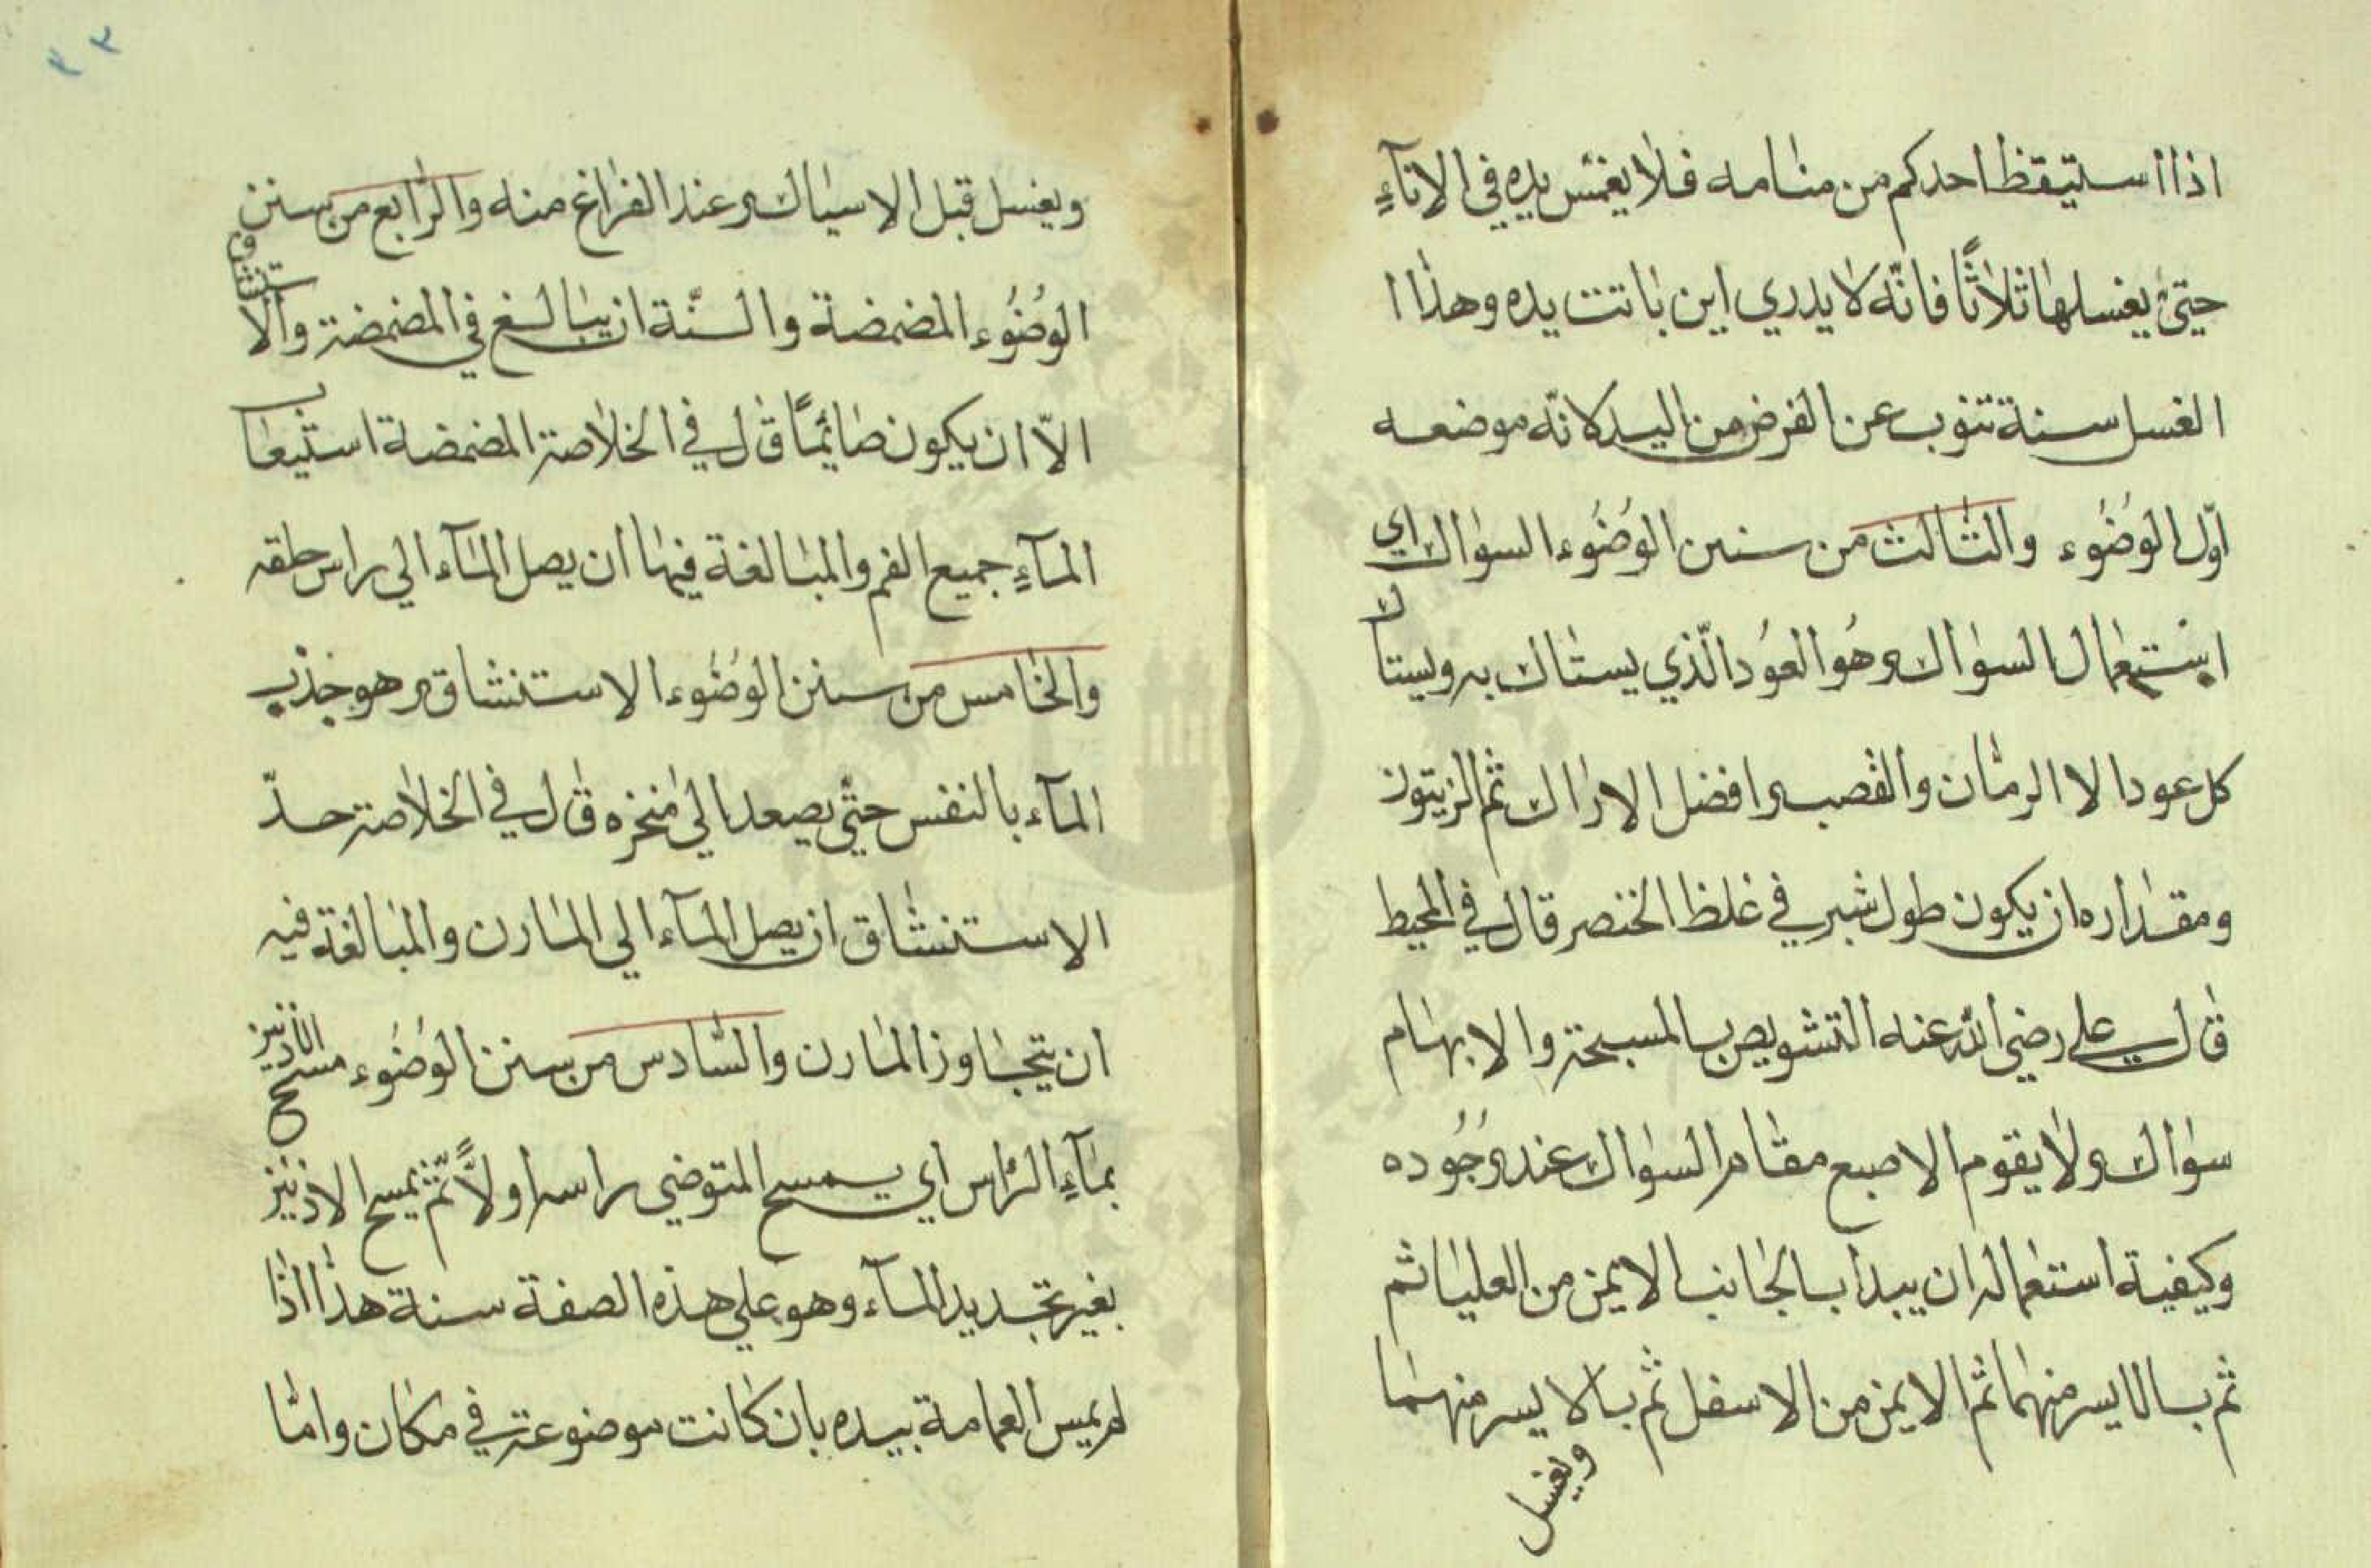 اذا استيقظ احدكم من منامه فلا يغمس يده في الانآءِ
حتىٰ يغسلها ثلاثًا فانّه لا يدري اين باتت يده وهذا ا
الغسل سنة تنوب عن الفرض من اليد لانّه موضعه
اوّل الوضُوء والثالث من سنين الوضُوء السواك اي
استعمال السواك وهُو العوُد الّذي يستاك به ويستاك
كل عود الا الرمان والقصب وافضل الاراك ثم الزيتون
ومقداره ان يكون طول شبر في غلظ الخنصر قال في المحيط
قال علي رضي الله عنه التشويص بالمسبحة والابهام
سواك ولا يقوم الاصبع مقام السواك عند وجُوده
وكيفية استعماله ان يبدا بالجانب الايمن من العليا ثم
ثم بالايسر منهما ثم الايمن من الاسفل ثم بالايسر منهما
ويغسل
٣٣
ويغسل قبل الاسياك وعند الفراغ منه والرابع من سنن
الوضُوء المضمضة والسنّة ان يبالغ في المضمضة والاستنشاق
الاّ ان يكون صائمًا قال في الخلاصة المضمضة استيعاب
المآءِ جميع الفم والمبالغة فيها ان يصل المآء الي راس حلقه
والخامس من سنن الوضُوء الاستنشاق وهو جذب
المآء بالنفس حتّي يصعد الي منخره قال في الخلاصة حدّ
الاستنشاق ان يصل المآء الي المارن والمبالغة فيه
ان يتجاوز المارن والسّادس من سنن الوضُوء مسح الاذنين
بمآءِ الرّاس اي يمسح المتوضي راسه اولاً ثمّ يمسح الاذنين
بغير تجديد المآء وهو علي هذه الصفة سنة هذا اذا
لم يمس العمامة بيده بان كانت موضوعة في مكان وامّا